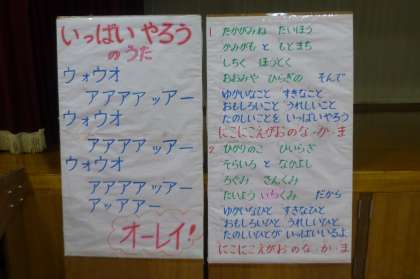 いっぱい やろう
のうた
ウォウオ
アアアアッアー
ウォウオ
アアアアッアー
ウォウオ
アアアアッアー
アッアアー
オーレイ!
1 たかがみね たいほう
かみがも と もとまち
しちく ほうとく
おおみや ひらぎの そんで
ゆかいなこと すきなこと
おもしろいこと うれしいこと
たのしいことを いっぱいやろう
にこにこえがおのな・か・ま
2 ひかりのこ ひいらぎ
そらいろ と なかよし
ろくみ さんくみ
たいよう いちくみ だから
ゆかいなひと すきなひと
おもしろいひと うれしいひと
たのしいひとが いっぱいいるよ
にこにこえがおの な・か・ま